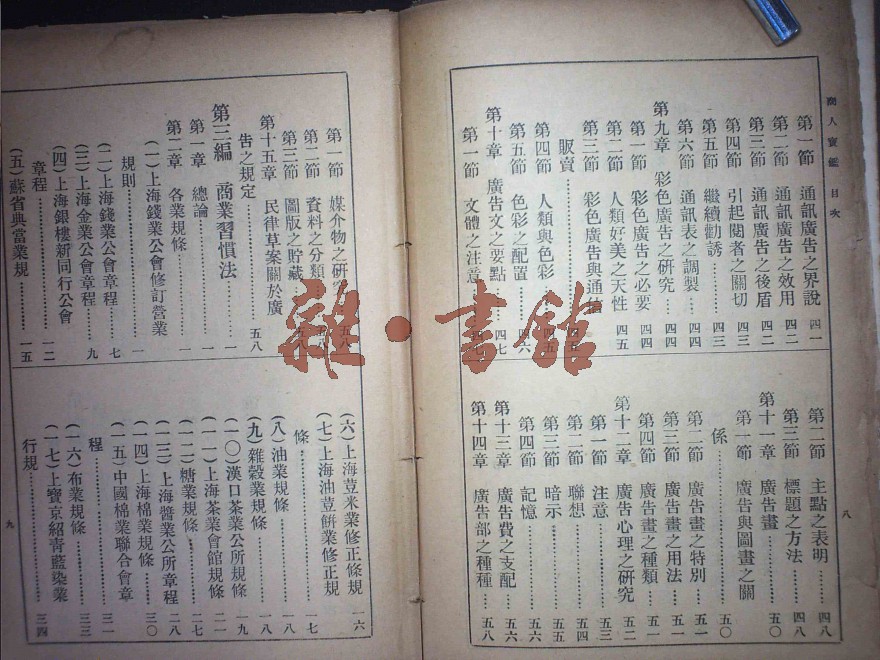 商人寶鑑 目次
第一節 通訊廣告之界說……四一
第二節 通訊廣告之效用……四二
第三節 通訊廣告之後盾……四二
第四節 引起閱者之關切……四三
第五節 繼續勸誘……四三
第六節 通訊表之調製……四四
第九章 彩色廣告之研究……四四
第一節 彩色廣告之必要……四四
第二節 人類好美之天性……四五
第三節 彩色廣告與通信
販賣
第四節 人類與色彩
第五節 色彩之配置……四六
第十章 廣告文之要點……四七
第一節 文體之注意
八
第二節 主點之表明……四八
第三節 標題之方法……四八
第十一章 廣告畫……五〇
第一節 廣告與圖畫之關
係……五〇
第二節 廣告畫之特別……五一
第三節 廣告畫之用法……五一
第四節 廣告畫之種類……五一
第十二章 廣告心理之研究……五二
第一節 注意……五三
第二節 聯想……五四
第三節 暗示……五四
第四節 記憶……五五
第十三章 廣告費之支配……五六
第十四章 廣告部之種種……五八
第一節 媒介物之研究……五八
第二節 資料之分類
第三節 圖版之貯藏……五八
第十五章 民律草案關於廣
告之規定……五八
第三編 商業習慣法……一
第一章 總論……一
第二章 各業規條……一
(一)上海錢業公會修訂營業
規則……一
(二)上海錢業公會章程……七
(三)上海金業公會章程……九
(四)上海銀樓新同行公會
章程……一二
(五)蘇省典當業規……一五
(六)上海荳米業修正條規……一六
(七)上海油荳餅業修正規
條……一七
(八)油業規條……一八
(九)雜穀業規條……一八
(一〇)漢口茶業公所規條……一九
(一一)上海茶業會館規條……二一
(一二)糖業規條……二七
(一三)上海醬業公所章程……二八
(一四)上海棉業規條……三〇
(一五)中國棉業聯合會章
程……三一
(一六)布業規條……三三
(一七)上寶京紹青藍染業
行規……三四
九
雜·書館